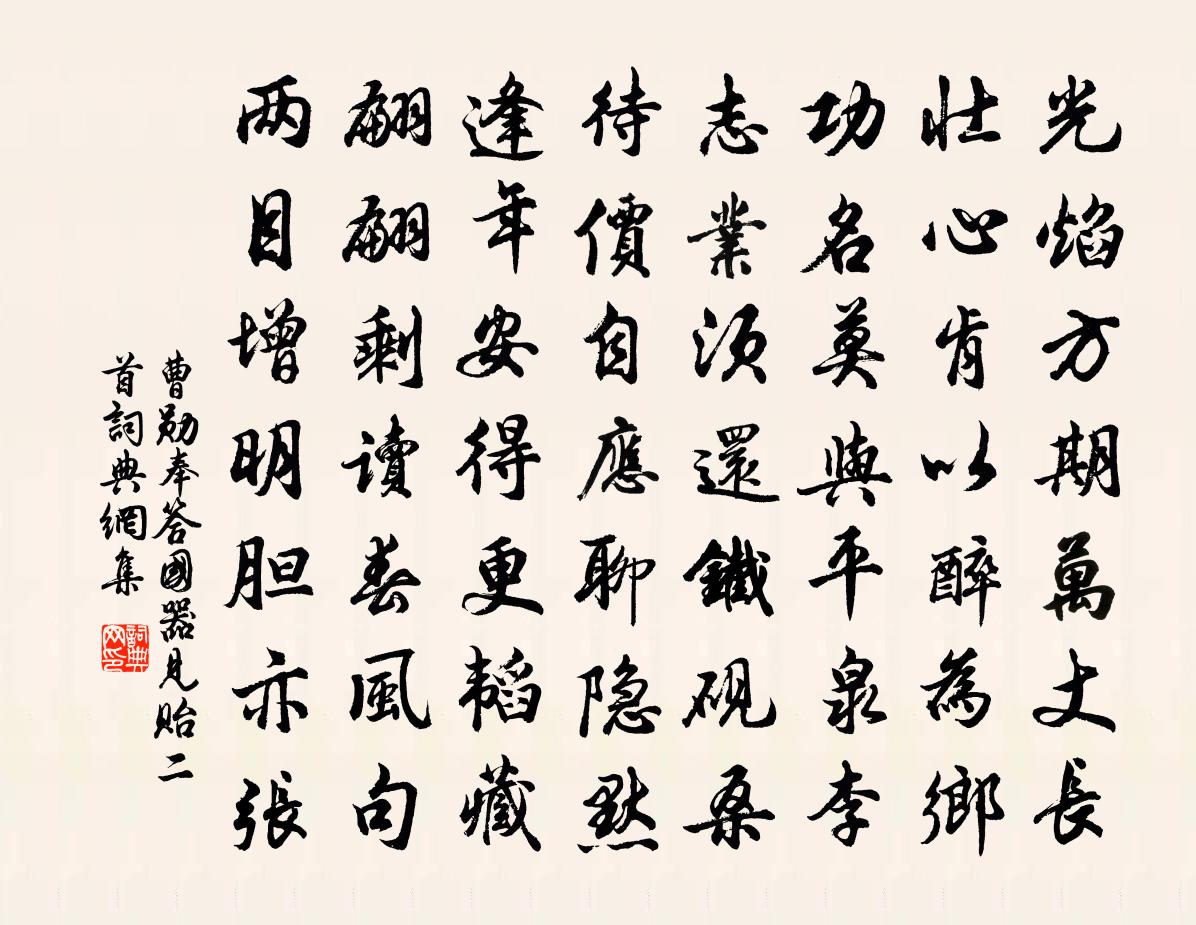 光焰方期萬丈長
壯心肯以醉為鄉
功名莫與平泉李
志業須還鐵硯桑
待價自應聊隐默
逢年安得更韬藏
翩翩剩讀春風句
两目增明胆亦張
曹勛奉答國器見貽二
首詞典網集
詞典
网印